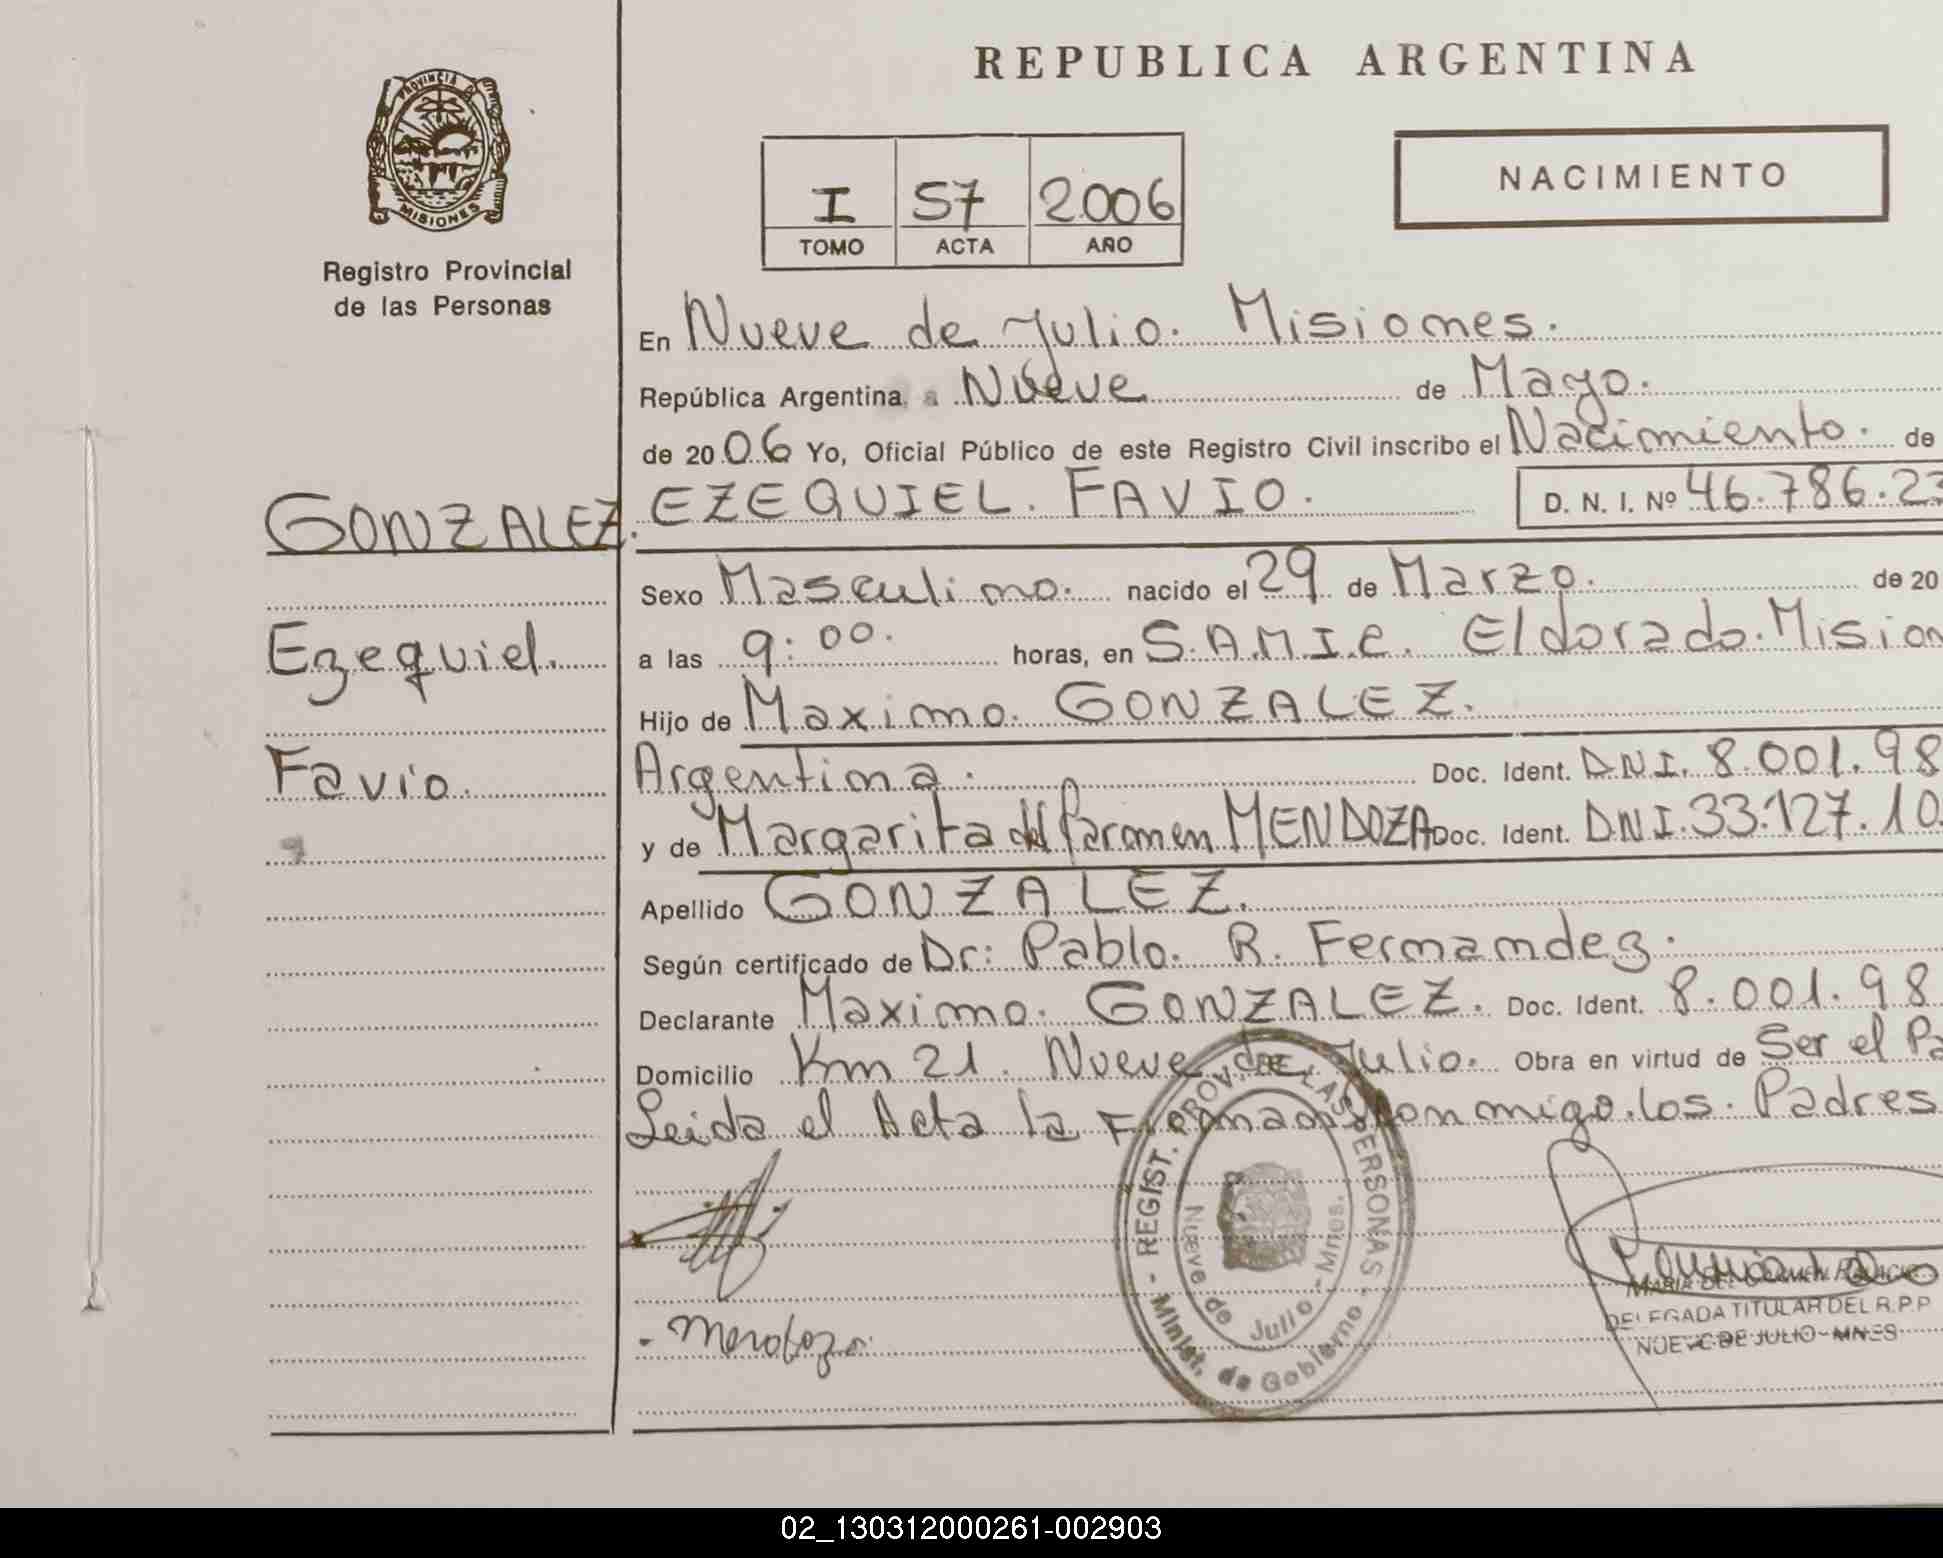 PROVINCIA DE
MISIONES
Registro Provincial
de las Personas
REPUBLICA ARGENTINA
I 57 2006
TOMO ACTA AÑO
NACIMIENTO
En Nueve de Julio. Misiones.
República Argentina, a Nueve de Mayo.
de 2006 Yo, Oficial Público de este Registro Civil inscribo el Nacimiento. de
GONZALEZ. EZEQUIEL. FAVIO. D. N. I. Nº 46.786.23
Sexo Masculino. nacido el 29 de Marzo. de 20
Ezequiel. a las 9:00. horas, en S.A.M.I.C. Eldorado. Mision
Hijo de Maximo. GONZALEZ.
Favio. Argentina. Doc. Ident. DNI. 8.001.98
y de Margarita del Carmen MENDOZA Doc. Ident. DNI. 33.127.10
Apellido GONZALEZ.
Según certificado de Dr: Pablo. R. Fernandez.
Declarante Maximo. GONZALEZ. Doc. Ident. 8.001.98
Domicilio Km 21. Nueve de Julio. Obra en virtud de Ser el Pa
Leida el Acta la Firman conmigo. los. Padres
REGIST. PROV. DE LAS PERSONAS - Minist. de Gobierno -
Nueve de Julio - Mnes.
MARIA DEL CARMEN PALACIO
DELEGADA TITULAR DEL R.P.P
NUEVE DE JULIO - MNES
Mendoza
02_130312000261-002903